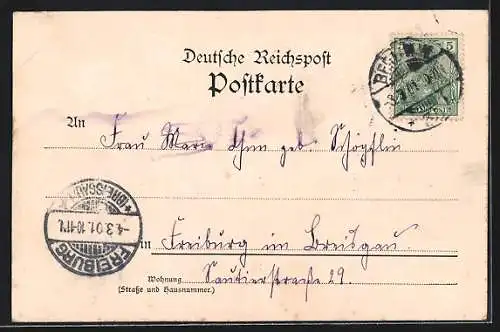 Deutsche Reichspost
Postkarte
5
An
Frau Marie Ihm geb. Schöpflin
in Freiburg im Breisgau.
Wohnung Sautierstraße 29.
(Straße und Hausnummer.)
FREIBURG
-4.3.01.10-11V.
* (BREISGAU)